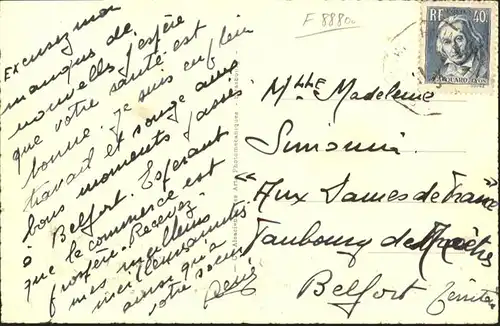 Excusez mon
manque de
nouvelles j'espère
que votre santé est
bonne. Je suis en plein
travail et songe aux
bons moments passés
à Belfort. Espérant
que le commerce est
prospère. Recevez
mes meilleurs
ainsi qu'à
votre soeur
René
F 8880
RF 40c
JACQUARD LYON
Mlle Madeleine
Simonin
"Aux Dames de France"
Faubourg de
Belfort